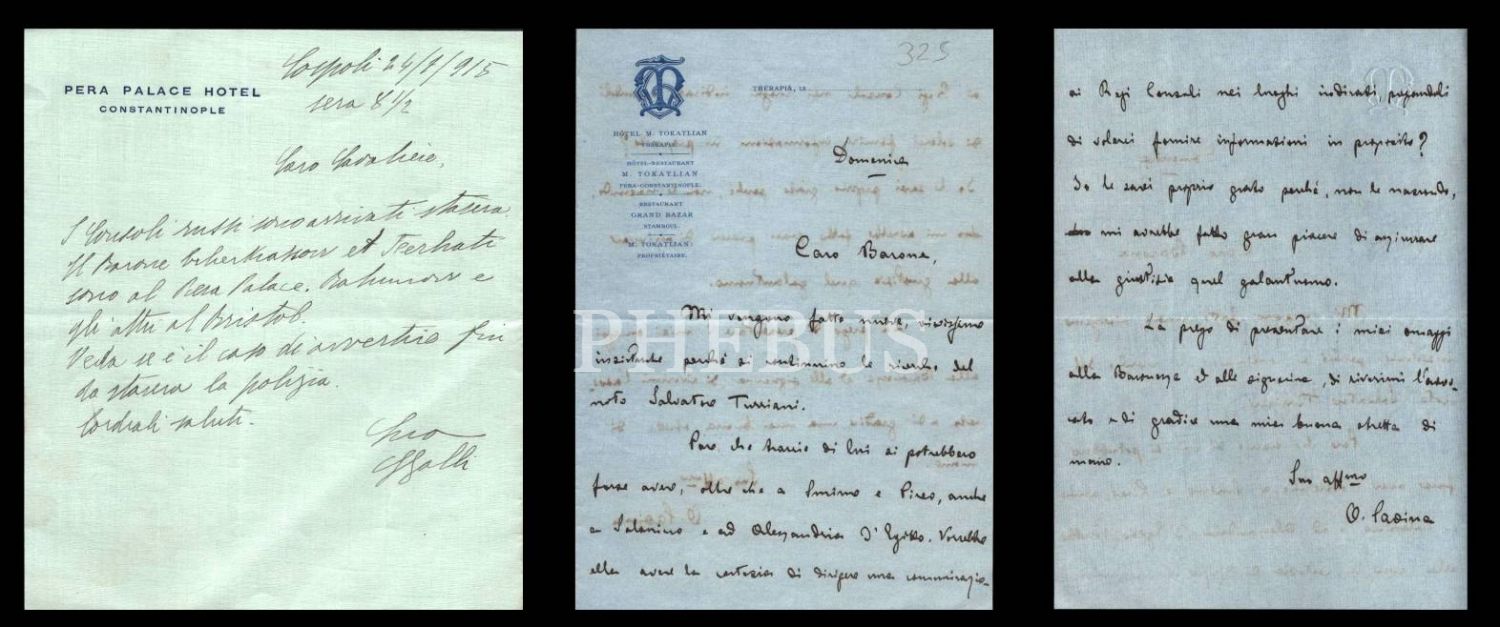 Cospoli 24/8/915
sera 8 1/2
PERA PALACE HOTEL
CONSTANTINOPLE
Caro Cavaliere,
I Consoli russi sono arrivati stasera.
Il Barone et
sono al Pera Palace. e
gli altri al Bristol.
Veda se è il caso di avvertire fin
da stasera la polizia.
Cordiali saluti.
Suo
GGalli
325
THÉRAPIA, LE
HÔTEL M. TOKATLIAN
THÉRAPIE
HÔTEL-RESTAURANT
M. TOKATLIAN
PERA-CONSTANTINOPLE.
RESTAURANT
GRAND BAZAR
STAMBOUL.
M. TOKATLIAN
PROPRIÉTAIRE.
Domenica
Caro Barone,
Mi vengono fatte nuove, vivissime
insistenze perchè si continuino le ricerche del
noto Salvatore Turriani.
Pare che traccie di lui si potrebbero
forse avere, oltre che a Smirne e Pireo, anche
a Salonicco e ad Alessandria d'Egitto. Vorrebbe
ella avere la cortesia di dirigere una comunicazio-
ai Regi Consoli nei luoghi indicati pregandoli
di volerci fornire informazioni in proposito?
Io le sarei proprio grato perché, non le nascondo,
mi avrebbe fatto gran piacere di
alla giustizia quel galantuomo.
La prego di presentare i miei omaggi
alla Baronessa ed alle signorine, di riverirmi l'avvo-
cato e di gradire una mia buona stretta di
mano.
Suo affmo
PHEBUS